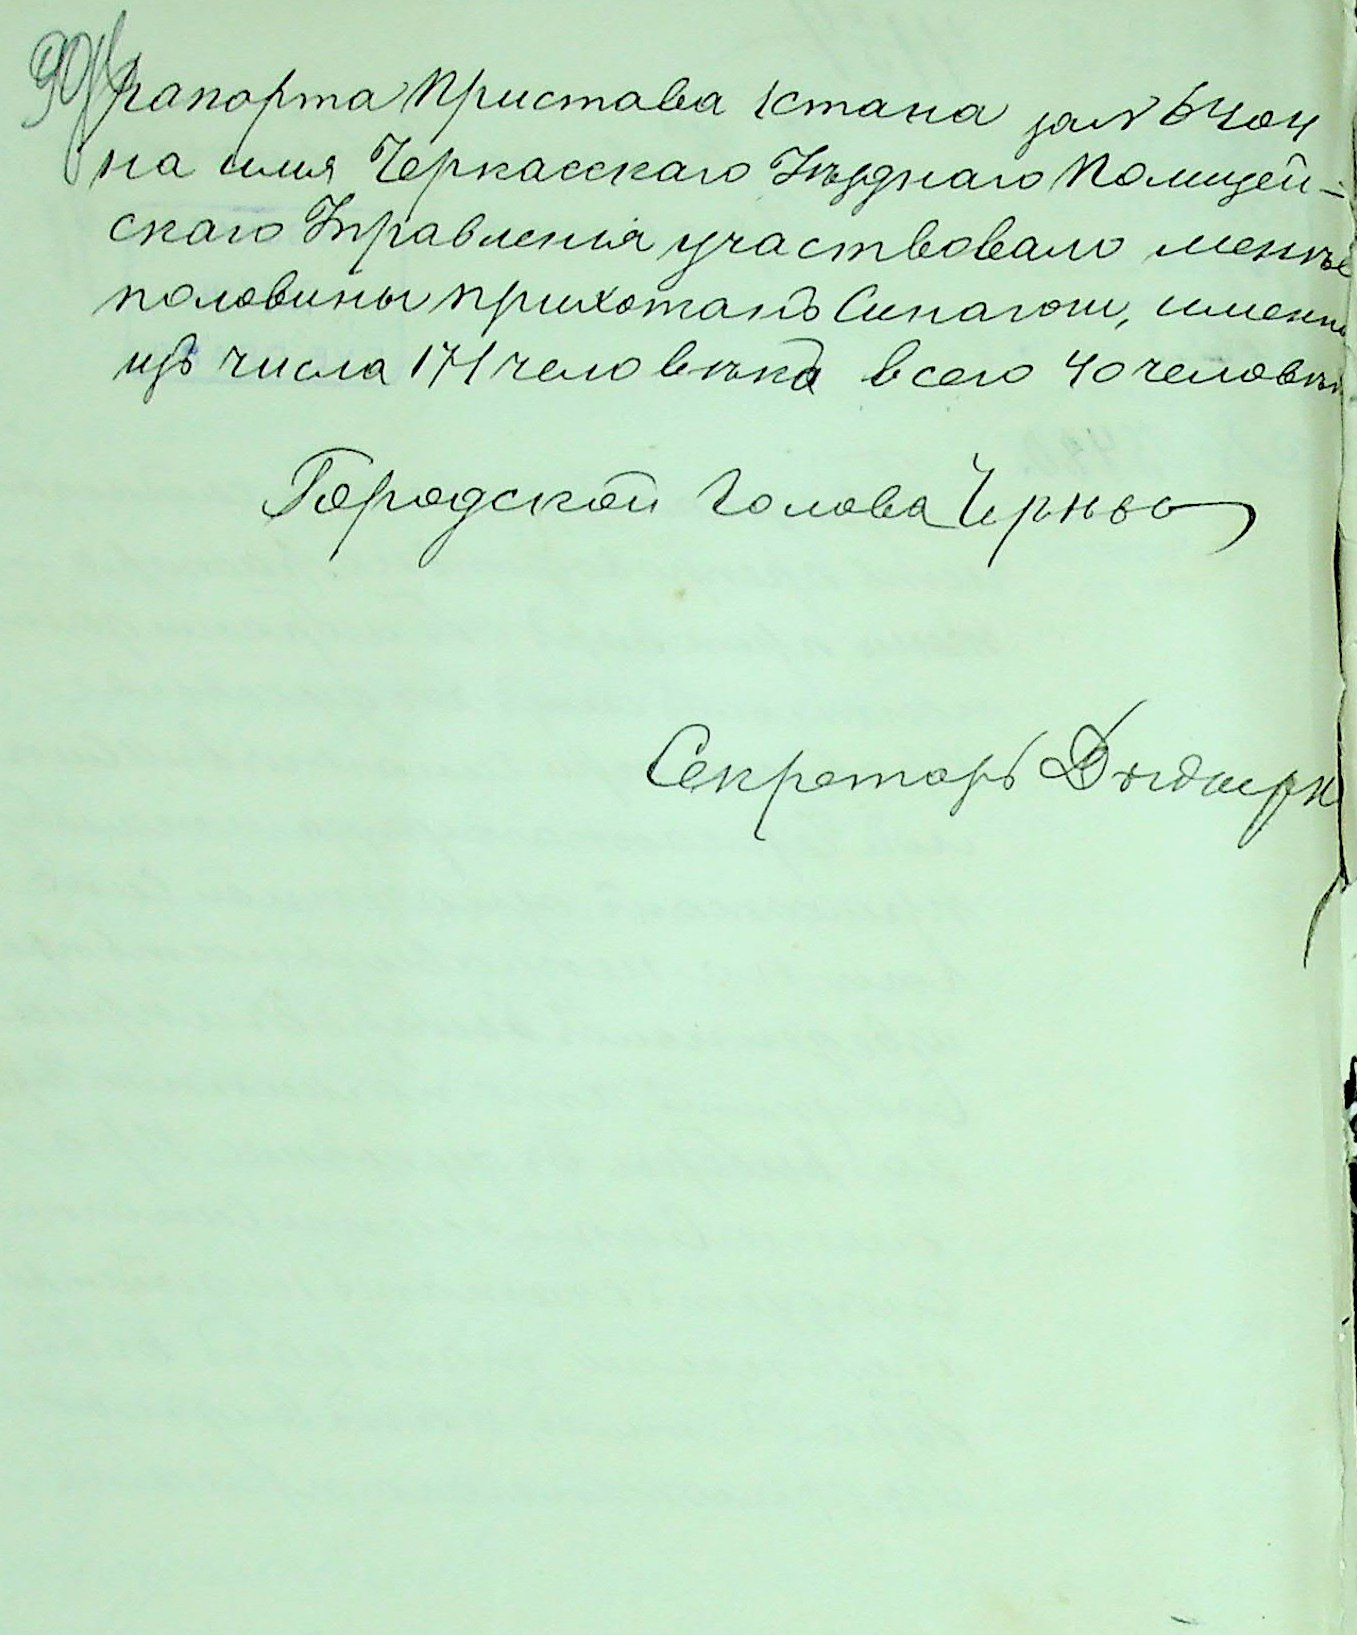 рапорта Пристава 1 стана за № 6404
на имя Черкасскаго Уѣзднаго Полицей-
скаго Управленія участвовало менѣе
половины прихожанъ Синагоги, именно
изъ числа 171 человѣка всего 40 человѣкъ
Городской Голова
Секретарь